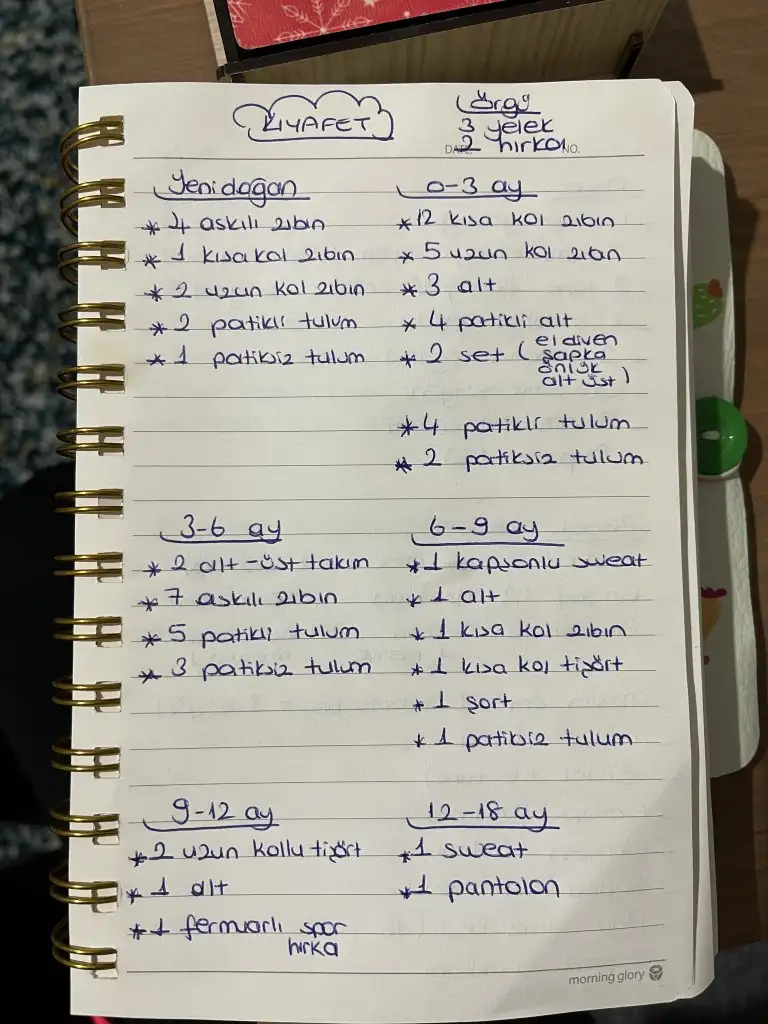 KIYAFET
Örgü
3 yelek
2 hırka
DATE. NO.
Yenidoğan
* 4 askılı zıbın
* 1 kısa kol zıbın
* 2 uzun kol zıbın
* 2 patikli tulum
* 1 patiksiz tulum
0-3 ay
* 12 kısa kol zıbın
* 5 uzun kol zıbın
* 3 alt
* 4 patikli alt
* 2 set ( eldiven
şapka
önlük
alt üst )
* 4 patikli tulum
* 2 patiksiz tulum
3-6 ay
* 2 alt-üst takım
* 7 askılı zıbın
* 5 patikli tulum
* 3 patiksiz tulum
6-9 ay
* 1 kapşonlu sweat
* 1 alt
* 1 kısa kol zıbın
* 1 kısa kol tişört
* 1 şort
* 1 patiksiz tulum
9-12 ay
* 2 uzun kollu tişört
* 1 alt
* 1 fermuarlı spor
hırka
12-18 ay
* 1 sweat
* 1 pantolon
morning glory